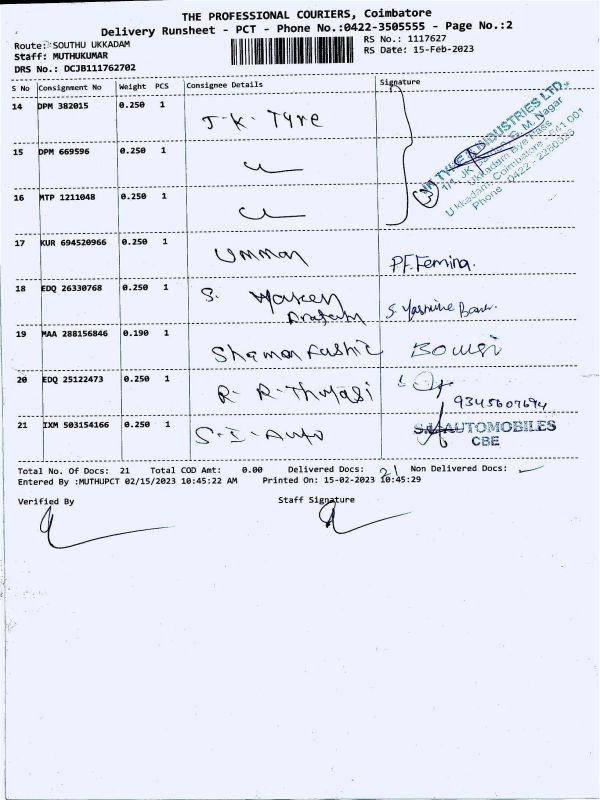 THE PROFESSIONAL COURIERS, Coimbatore
Delivery Runsheet - PCT - Phone No.:0422-3505555 - Page No.:2
Route: SOUTHU UKKADAM RS No.: 1117627
Staff: MUTHUKUMAR RS Date: 15-Feb-2023
DRS No.: DCJB111762702
S No Consignment No Weight PCS Consignee Details Signature
14 DPM 382015 0.250 1 J. K. Tyre
JK TYRE & INDUSTRIES LTD.,
Ukkadam Bye Pass
Ukkadam, Coimbatore - 641 001
Phone : 0422 -
15 DPM 669596 0.250 1
16 MTP 1211048 0.250 1
17 KUR 694520966 0.250 1 Umman P.F. Femina.
18 EDQ 26330768 0.250 1 S. S. Yasmine
19 MAA 288156846 0.190 1
20 EDQ 25122473 0.250 1 R. R. Thulasi
9345607694
21 IXM 503154166 0.250 1 S. I. Auto AUTOMOBILES
CBE
Total No. Of Docs: 21 Total COD Amt: 0.00 Delivered Docs: 21 Non Delivered Docs:
Entered By :MUTHUPCT 02/15/2023 10:45:22 AM Printed On: 15-02-2023 10:45:29
Verified By Staff Signature